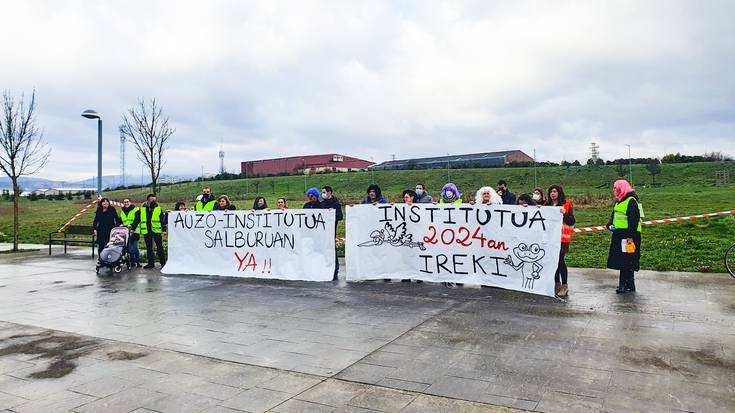 AUZO-INSTITUTUA
SALBURUAN
YA!!
INSTITUTUA
2024an
IREKI